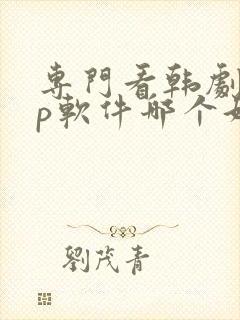 專門看韩劇
p軟件哪个好
劉茂青